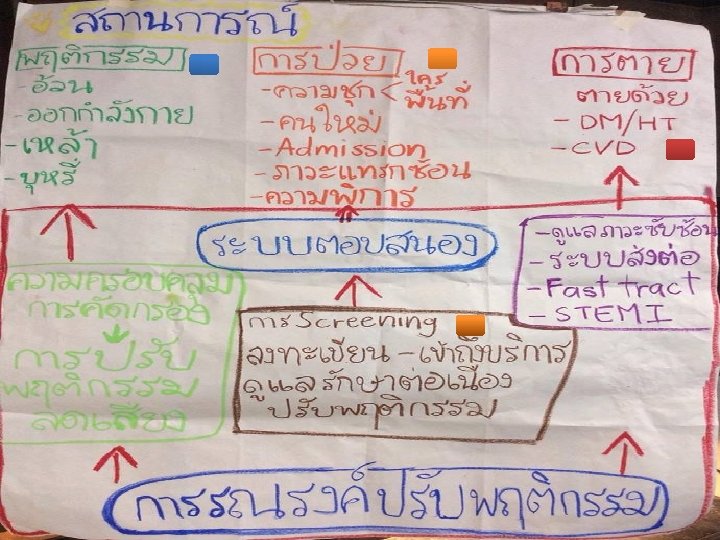 สถานการณ์
พฤติกรรม
- อ้วน
- ออกกำลังกาย
- เหล้า
- บุหรี่
การป่วย
- ความชุก < ใคร
พื้นที่
- คนใหม่
- Admission
- ภาวะแทรกซ้อน
- ความพิการ
การตาย
ตายด้วย
- DM/HT
- CVD
ระบบตอบสนอง
- ดูแลภาวะซับซ้อน
- ระบบส่งต่อ
- Fast tract
- STEMI
ความครอบคลุม
การคัดกรอง
การปรับ
พฤติกรรม
ลดเสี่ยง
การ Screening
ลงทะเบียน - เข้าถึงบริการ
ดูแลรักษาต่อเนื่อง
ปรับพฤติกรรม
การรณรงค์ปรับพฤติกรรม